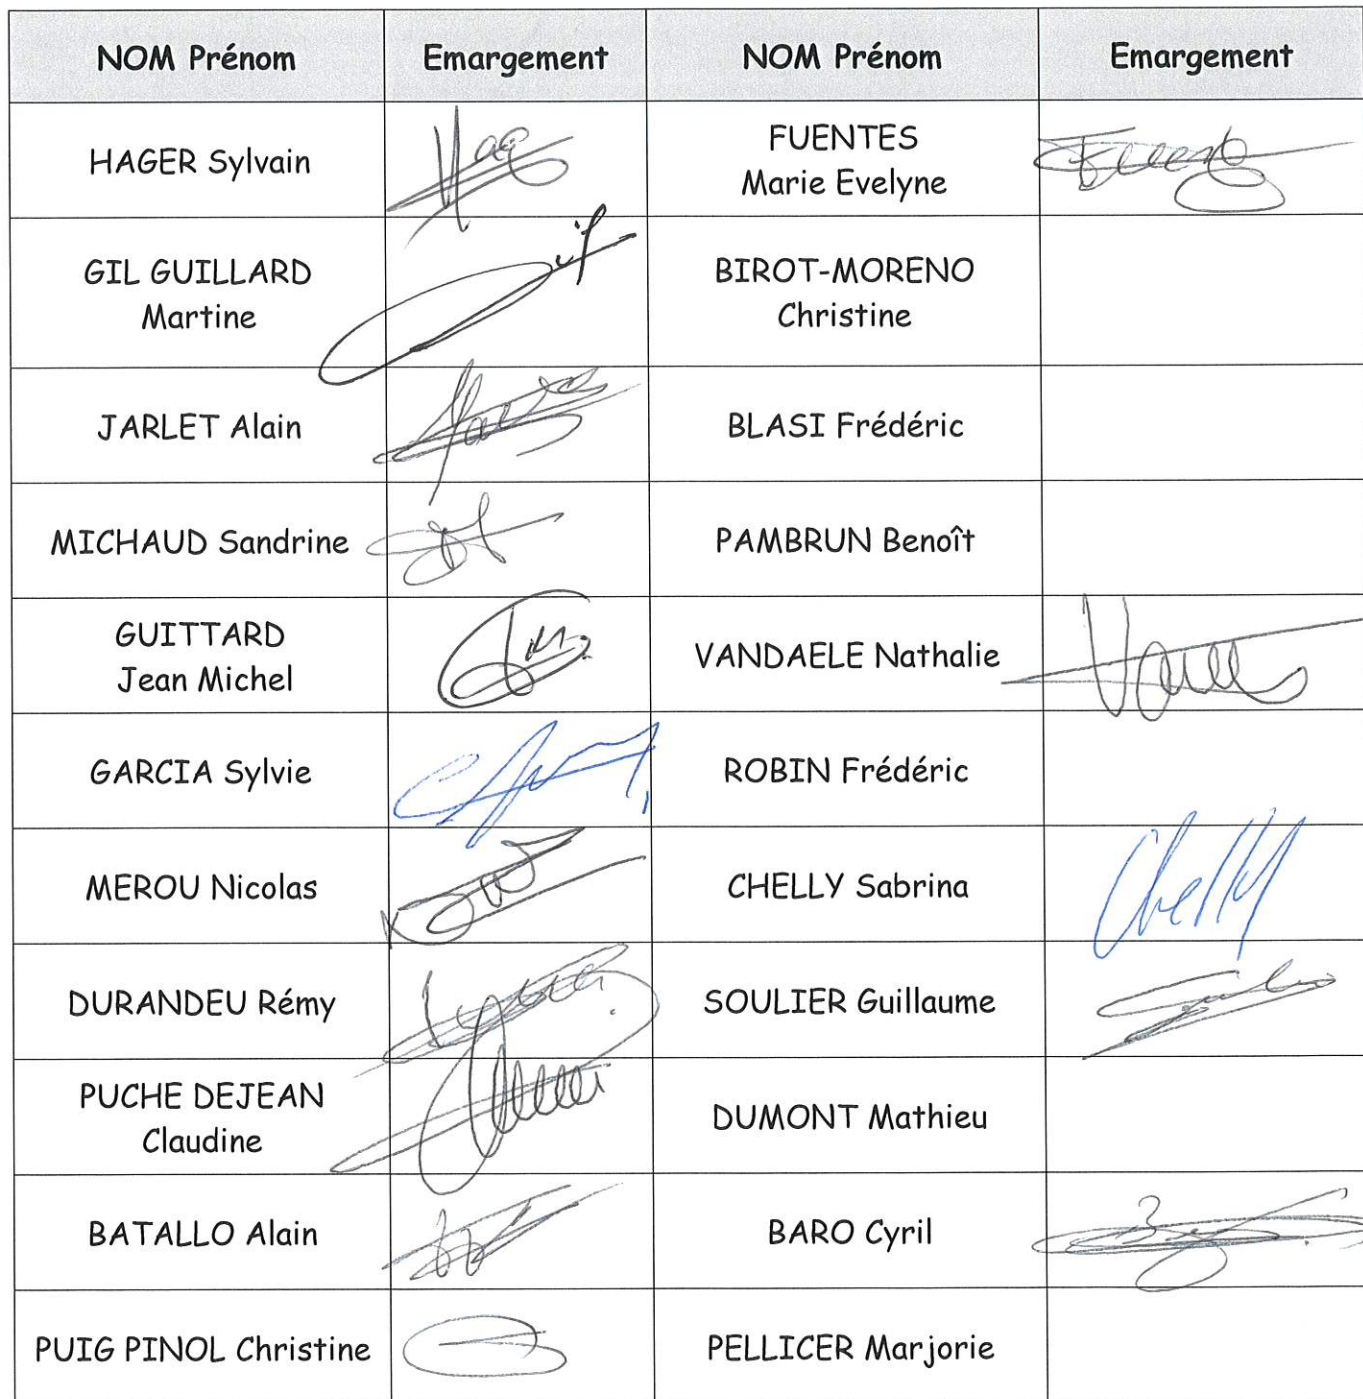 NOM Prénom Emargement NOM Prénom Emargement
HAGER Sylvain FUENTES
Marie Evelyne
GIL GUILLARD
Martine BIROT-MORENO
Christine
JARLET Alain BLASI Frédéric
MICHAUD Sandrine PAMBRUN Benoît
GUITTARD
Jean Michel VANDAELE Nathalie
GARCIA Sylvie ROBIN Frédéric
MEROU Nicolas CHELLY Sabrina Chelly
DURANDEU Rémy SOULIER Guillaume
PUCHE DEJEAN
Claudine DUMONT Mathieu
BATALLO Alain BARO Cyril
PUIG PINOL Christine PELLICER Marjorie